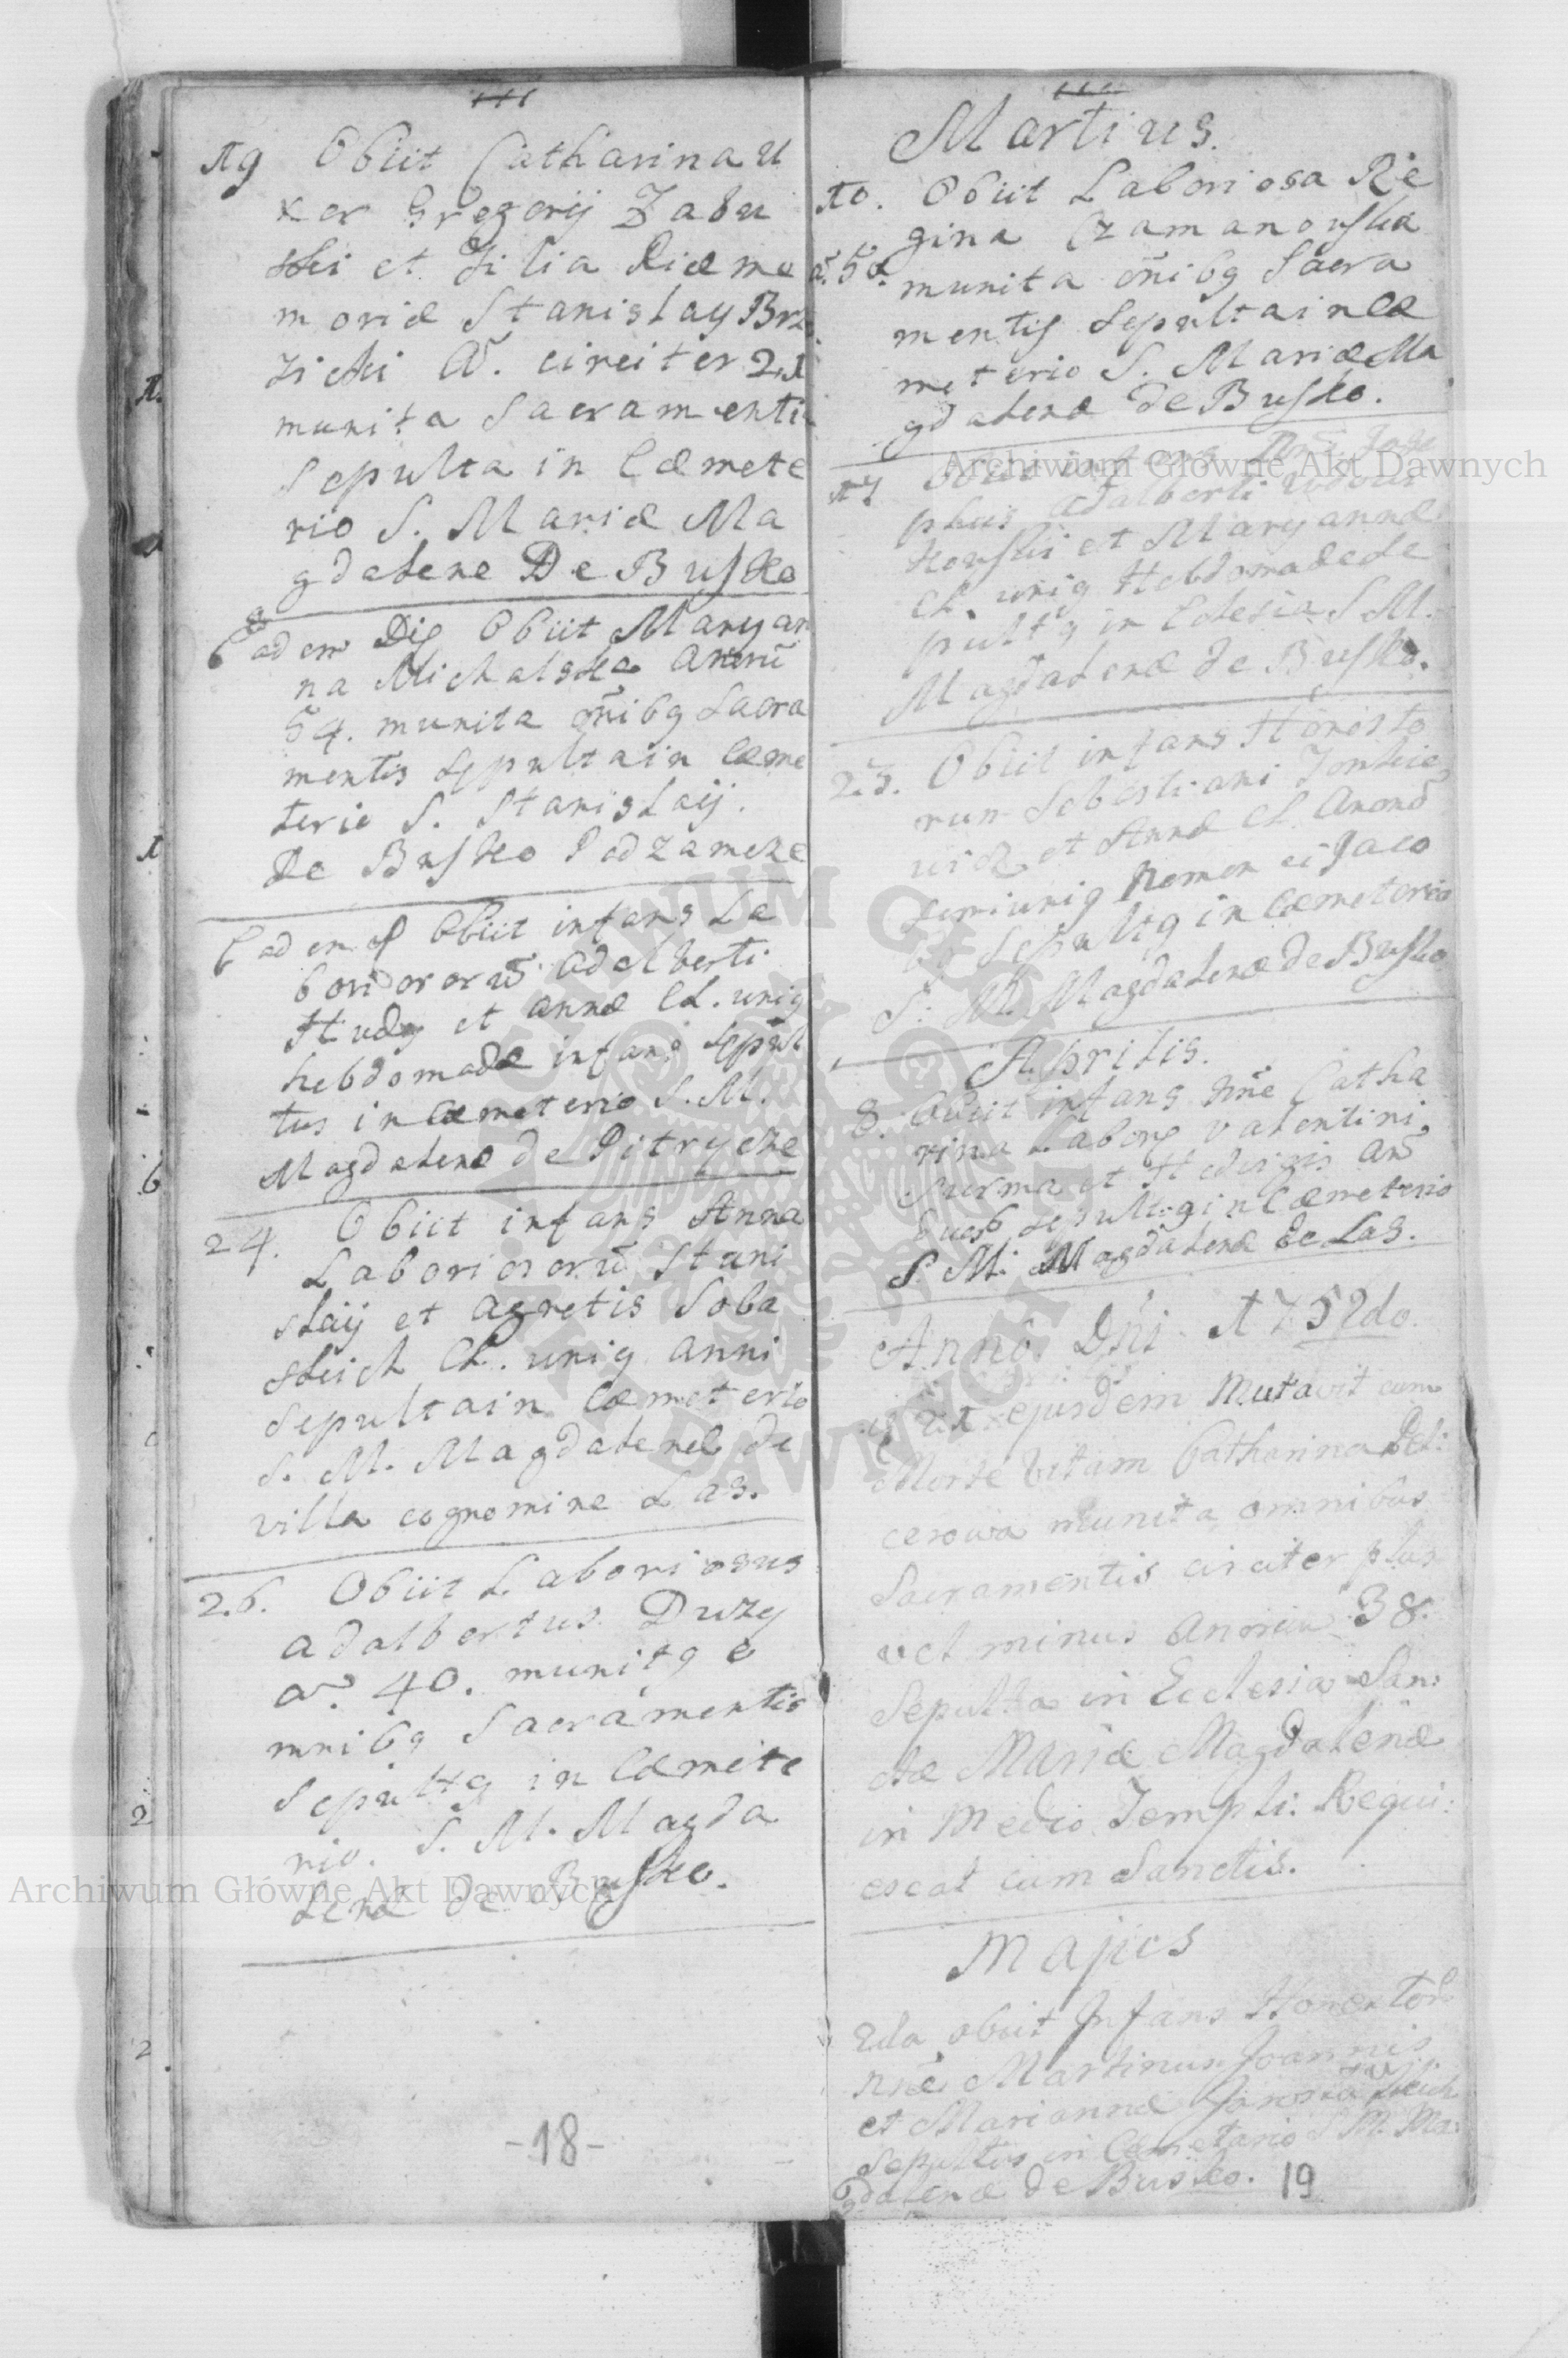 19 Obiit Catharina U
xor Gregorij Zabu
ski et Filia Piæ me
moriæ Stanislay Brz
zicki A. circiter 21
munita Sacramenti
Sepulta in Cœmete
rio S. Mariæ Ma
gdalene De Busko
Eadem Die Obiit Maryan
na Michalska Annorū
54. munita oñibq Sacra
mentis Sepulta in Cœme
terio S. Stanislaij.
De Busko Podzamcze
Eadem Obiit infans La
boriosororū Adalberti
et Annæ Cl. uniq
hebdomadæ infans Sepul
tus in Cœmeterio S. M.
Magdalenæ de Pitrycze
24. Obiit infans Anna
Laboriosorū Stani
slaij et Agnetis Soba
skich Cl. uniq Anni
Sepulta in Cœmeterio
S. M. Magdalenæ de
villa cognomine Las.
26. Obiit Laboriosus
Adalbertus Duzy
a. 40. munitq o
mnibq Sacramentis
Sepultq in Cœmete
rio. S. M. Magda
lenæ de Busko.
-18-
Martius.
10. Obiit Laboriosa Re
gina Czamanowska
a. 50. munita oñibq Sacra
mentis Sepulta in Cœ
meterio S. Mariæ Ma
gdalenæ de Busko.
17 Obiit infans Jose
phus Adalberti
kowskii et Maryannæ
Cl. uniq Hebdomadæ Se
pultq in Eclesia S M.
Magdalenæ de Busko.
23. Obiit infans Honesto
rum Sebestiani
wicz et Annæ Cl. Annorū
Nomen ei Jaco
bq Sepultq in Cœmeterio
S. M. Magdalenæ de Busko
Aprilis.
8. Obiit infans Nñe Catha
rina Labors Valentini
Surma et Hedvigis
Sepultq in Cœmeterio
S. M. Magdalenæ de Las.
Anno Dñi 1752do
21 ejusdem Mutavit cum
Morte Vitam Catharina Del:
cerowa munita omnibus
Sacramentis circiter plus
vel minus Annorum 38.
Sepulta in Ecclesia San:
ctæ Mariæ Magdalenæ
in Medio Templi. Requi:
escat cum Sanctis.
Majus
2da obiit Infans Honestor
Nñe Martinus Joannis
et Mariannæ
Sepultus in Cœmetario S M. Ma:
gdalenæ de Busko.
19
Archiwum Główne Akt Dawnych
Archiwum Główne Akt Dawnych
ARCHIWUM GŁÓWNE AKT DAWNYCH